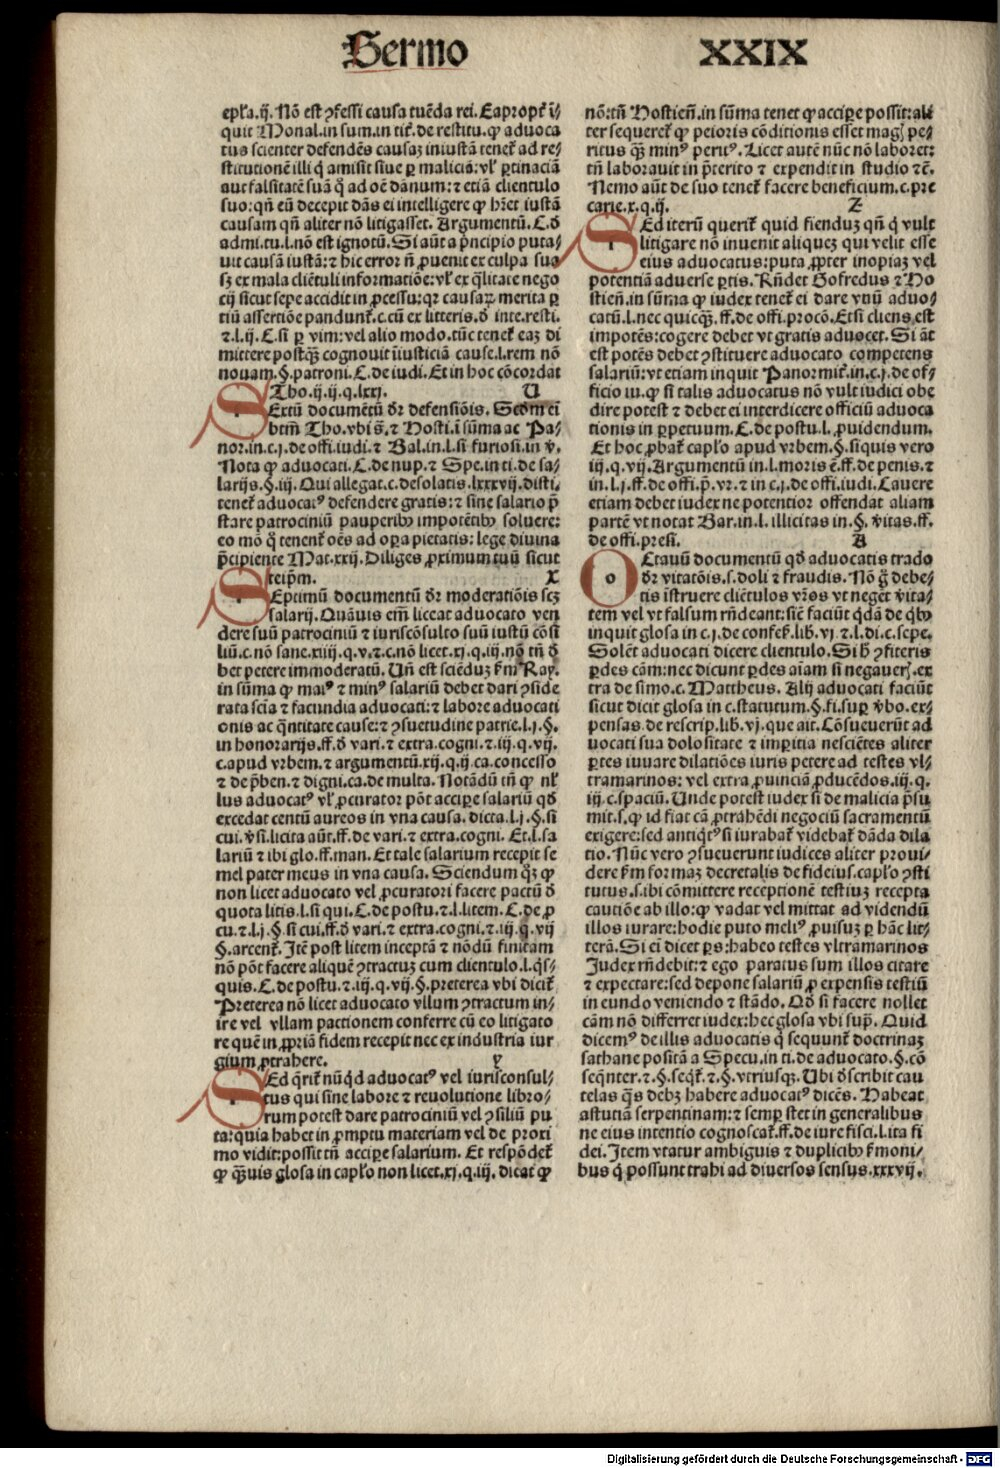 Sermo
XXIX
epl'a.ij. Nõ est ꝯfessi causa tuẽda rei. Eapropt̃ ĩ⸗
quit Monal.in sum.in tit̃.de restitu.ꝙ aduoca
tus scienter defendẽs causaȝ iniustã tenet̃ ad re⸗
stitutionẽ illi q̃ amisit siue ꝑ maliciã: vl' ꝑtinaciã
aut falsitatẽ suã q̃ ad oẽ dãnum: ⁊ etiã clientulo
suo: qñ eũ decepit dãs ei intelligere ꝙ h̃et iustã
causam qñ aliter nõ litigasset. Argumentũ. C. d̃
admi.tu.l.nõ est ignotũ. Si aũt a p̃ncipio puta⸗
uit causã iustã: ⁊ hic error ñ ꝓuenit ex culpa sua
sȝ ex mala cliẽtuli informatiõe: vl' ex q̃litate nego
cij sicut sepe accidit in ꝓcessu: qꝛ causaꝝ merita ꝑ
tiũ assertiõe pandunt̃.c.cũ ex litteris.d̃ inte.resti.
⁊.l.ij. C. si ꝑ vim: vel alio modo. tũc tenet̃ eaȝ di
mittere postq̃ȝ cognouit ĩiusticiã cause.l.rem nõ
nouam.§.patroni. C. de iudi. Et in hoc cõcordat
Tho.ij.ij.q.lxxj. U
SExtũ documẽtũ dr̃ defensiõis. Scd̃m eĩ
btm̃ Tho. vbi s̃. ⁊ Hosti.ĩ sũma ac Pa⸗
nor.in.c.j.de offi.iudi. ⁊ Bal.in.l.si furiosi.in ṽ.
Nota ꝙ aduocati. C. de nup. ⁊ Spe.in ti.de sa⸗
larijs.§.iij. Qui allegat.c.desolatis.lxxxvij.disti⸗
tenet̃ aduocatꝰ defendere gratis: ⁊ sine salario p̃
stare patrociniũ pauperibꝰ impotẽtibꝰ soluere:
eo mõ q̃ tenent̃ oẽs ad oꝑa pietatis: lege diuina
p̃cipiente Mat.xxij. Diliges ꝓximum tuũ sicut
teip̃m. X
SEptimũ documentũ dr̃ moderatiõis scȝ
salarij. Quãuis em̃ liceat aduocato ven
dere suũ patrociniũ ⁊ iuriscõsulto suũ iustũ cõsi
liũ.c.nõ sane.xiiij.q.v. ⁊.c.nõ licet.xj.q.iij.nõ tñ d̃
bet petere immoderatũ. Uñ est sciẽduȝ s̃m Ray.
in sũma ꝙ maiꝰ ⁊ minꝰ salariũ debet dari ꝯside
rata sciã ⁊ facundia aduocati: ⁊ labore aduocati
onis ac q̃ntitate cause: ⁊ ꝯsuetudine patrie.l.j.§.
in honorarijs.ff.d̃ vari. ⁊ extra.cogni. ⁊.iij.q.vij.
c.apud vrbem. ⁊ argumentũ.xij.q.ij.ca.concesso
⁊ de p̃ben. ⁊ digni.ca.de multa. Notãdũ tñ ꝙ nl'
lus aduocatꝰ vl' ꝓcurator põt acciꝑe salariũ qd̃
excedat centũ aureos in vna causa. dicta.l.j.§.si
cui. ṽsi.licita aũt.ff.de vari. ⁊ extra.cogni. Et.l.sa
lariũ ⁊ ibi glo.ff.man. Et tale salarium recepit se
mel pater meus in vna causa. Sciendum q̃ȝ ꝙ
non licet aduocato vel ꝓcuratori facere pactũ d̃
quota litis.l.si qui. C. de postu. ⁊.l.litem. C. de ꝓ
cu. ⁊.l.j.§.si cui.ff.d̃ vari. ⁊ extra.cogni. ⁊.iij.q.vij
§.arcent̃. Itẽ post litem inceptã ⁊ nõdũ finitam
nõ põt facere aliquẽ ꝯtractuȝ cum clientulo.l.q̃s⸗
quis. C. de postu. ⁊.iij.q.vij.§.preterea vbi dicit̃
Preterea nõ licet aduocato vllum ꝯtractum in⸗
ire vel vllam pactionem conferre cũ eo litigato
re quẽ in ꝓpriã fidem recepit nec ex industria iur
gium ꝓtrahere. Y
SEd q̃rit̃ nũq̃d aduocatꝰ vel iurisconsul⸗
tus qui sine labore ⁊ reuolutione libro⸗
rum potest dare patrociniũ vel ꝯsiliũ pu
ta: quia habet in ꝓmptu materiam vel de proxi
mo vidit: possit tñ acciꝑe salarium. Et respõdet̃
ꝙ q̃ȝuis glosa in capl'o non licet.xj.q.iij. dicat ꝙ
nõ: tñ Hostieñ.in sũma tenet ꝙ acciꝑe possit: ali
ter sequeret̃ ꝙ peioris cõditionis esset mag̃ pe⸗
ritus q̃ȝ minꝰ peritꝰ. Licet autẽ nũc nõ laboret:
tñ laborauit in p̃terito ⁊ expendit in studio ⁊c̃.
Nemo aũt de suo tenet̃ facere beneficium.c.pre
carie.x.q.ij. Z
SEd iterũ querit̃ quid fienduȝ qñ q̃ vult
litigare nõ inuenit aliqueȝ qui velit esse
eius aduocatus: puta ꝓpter inopiaȝ vel
potentiã aduerse ꝑtis. Rñdet Gofredus ⁊ Ho
stieñ.in sũma ꝙ iudex tenet̃ ei dare vnũ aduo⸗
catũ.l.nec quicq̃ȝ.ff.de offi.procõ. Et si cliens est
impotẽs: cogere debet vt gratis aduocet. Si ãt
est potẽs debet ꝯstituere aduocato competens
salariũ: vt etiam inquit Panormit̃.in.c.j.de of⸗
ficio iu. ꝙ si talis aduocatus nõ vult iudici obe
dire potest ⁊ debet ei interdicere officiũ aduoca
tionis in ꝑpetuum. C. de postu.l.ꝓuidendum.
Et hoc ꝓbat̃ capl'o apud vrbem.§.si quis vero
iij.q.vij. Argumentũ in.l.moris ẽ.ff.de penis. ⁊
in.l.j.ff.de offi.p̃.vr. ⁊ in c.j.de offi.iudi. Cauere
etiam debet iudex ne potentior offendat aliam
partẽ vt notat Bar.in.l.illicitas in.§.ṽitas.ff.
de offi.presi. A
OCtauũ documentũ qd̃ aduocatis trado
dr̃ vitatõis.s.doli ⁊ fraudis. Nõ g̃ debe⸗
tis ĩstruere cliẽtulos vr̃os vt neget ṽita⸗
tem vel vt falsum rñdeant: sic̃ faciũt q̃dã de q̃bꝰ
inquit glosa in c.j.de confes̃.lib.vj. ⁊.l.di.c.sepe.
Solẽt aduocati dicere clientulo. Si h̃ ꝯfiteris
ꝑdes cãm: nec dicunt ꝑdes aĩam si negauer̃.ex
tra de simo.c.Mattheus. Alij aduocati faciũt
sicut dicit glosa in c.statutum.§.fi.suꝑ ṽbo.ex⸗
pensas.de rescrip.lib.vj.que ait. Cõsueuerũt ad
uocati sua dolositate ⁊ imperitia nesciẽtes aliter
ꝑtes iuuare dilatiões iuris petere ad testes vl⸗
tramarinos: vel extra ꝓuinciã ꝓducẽdos.iij.q.
iij.c.spaciũ. Unde potest iudex si de malicia p̃su
mit.s.ꝙ id fiat cã ꝓtrahẽdi negociũ sacramentũ
exigere: sed antiq̃tꝰ si iurabat̃ videbat̃ dãda dila
tio. Nũc vero ꝯsueuerunt iudices aliter proui⸗
dere s̃m formaȝ decretalis de fideius.capl'o ꝯsti
tutus.s.ibi cõmittere receptionẽ testiuȝ recepta
cautiõe ab illo: ꝙ vadat vel mittat ad videndũ
illos iurare: hodie puto meliꝰ ꝓuisuȝ ꝑ hãc lit⸗
terã. Si eĩ dicet ꝑs: habeo testes vltramarinos
Judex rñdebit: ⁊ ego paratus sum illos citare
⁊ expectare: sed depone salariũ ꝓ expensis testiũ
in eundo veniendo ⁊ stãdo. Qd̃ si facere nollet
cãm nõ differret iudex: hec glosa vbi sup̃. Quid
dicemꝰ de illis aduocatis q̃ sequunt̃ doctrinaȝ
sathane positã a Specu.in ti.de aduocato.§.cõ
seq̃nter. ⁊.§.seq̃t̃. ⁊.§.vtriusqȝ. Ubi d̃scribit cau
telas q̃s debȝ habere aduocatꝰ dicẽs. Habeat
astutiã serpentinam: ⁊ semꝑ stet in generalibus
ne eius intentio cognoscat̃.ff.de iure fisci.l.ita fi
dei. Item vtatur ambiguis ⁊ duplicibꝰ s̃moni⸗
bus q̃ possunt trahi ad diuersos sensus.xxxvij.
Digitalisierung gefördert durch die Deutsche Forschungsgemeinschaft - DFG